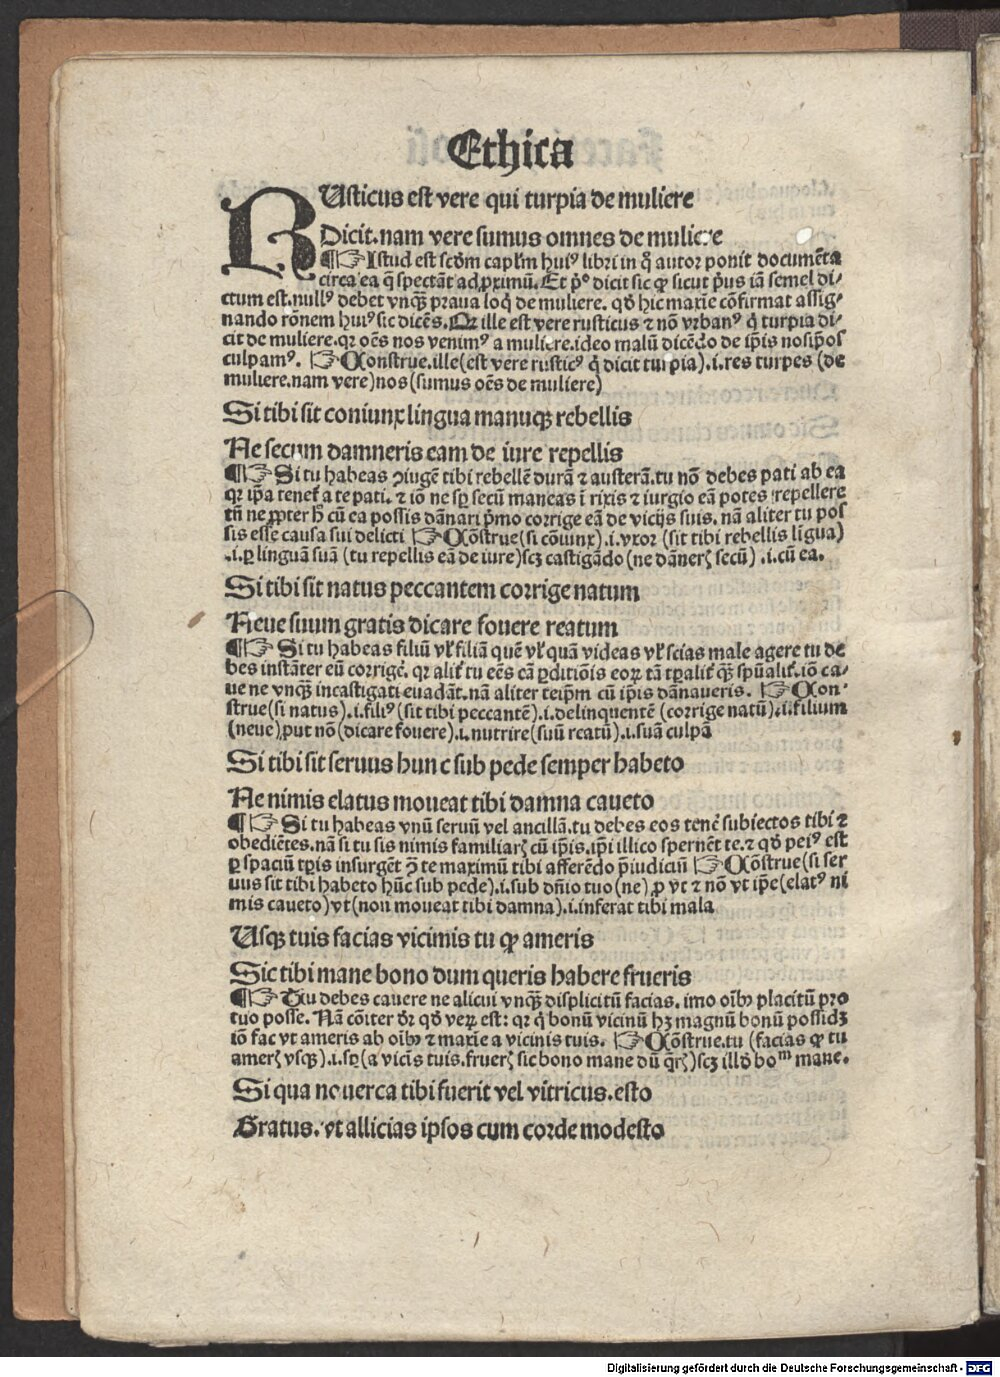 Ethica
RUsticus est vere qui turpia de muliere
Dicit.nam vere sumus omnes de muliere
¶☞Istud est scd̄m capl'm huiꝰ libri in q̄ autor ponit documēta
circa ea q̄ spectāt ad ꝓximū. Et pͦ dicit sic ꝙ sicut p̄us iā semel di⸗
ctum est.nullꝰ debet vnqꝫ praua loq̄ de muliere. qd̄ hic maxīe cōfirmat assig⸗
nando rōnem huiꝰ sic dicēs. Qꝛ ille est vere rusticus ⁊ nō vrbanꝰ q̄ turpia di⸗
cit de muliere.qꝛ oēs nos venimꝰ a muliere.ideo malū dicēdo de ip̄is nosip̄os
culpamꝰ. ☞Construe.ille(est vere rusticꝰ q̄ dicit turpia).i.res turpes (de
muliere.nam vere)nos(sumus oēs de muliere)
Si tibi sit coniunx lingua manuqꝫ rebellis
Ne secum damneris eam de iure repellis
¶☞Si tu habeas ꝯiugē tibi rebellē durā ⁊ austerā.tu nō debes pati ab ea
qꝛ ip̄a tenet̄ a te pati. ⁊ iō ne sꝑ secū maneas ī rixis ⁊ iurgio eā potes repellere
tn̄ ne ꝓpter h̄ cū ea possis dānari p̄mo corrige eā de vicijs suis. nā aliter tu pos
sis esse causa sui delicti ☞Cōstrue(si cōiunx).i.vxor (sit tibi rebellis līgua)
.i.ꝑ linguā suā (tu repellis eā de iure)scꝫ castigādo (ne dāner̄ secū) .i.cū ea.
Si tibi sit natus peccantem corrige natum
Neue suum gratis dicare fouere reatum
¶☞Si tu habeas filiū vl' filiā quē vl' quā videas vl' scias male agere tu de
bes instāter eū corrigē. qꝛ alit̄ tu eēs cā ꝑditiōis eoꝝ tā tꝑalit̄ qꝫ̄ spūalit̄.iō ca⸗
ue ne vnqꝫ incastigati euadāt.nā aliter teip̄m cū ip̄is dānaueris. ☞Con⸗
strue(si natus).i.filiꝰ(sit tibi peccantē).i.delinquentē (corrige natū).i.filium
(neue)put nō(dicare fouere).i.nutrire(suū reatū).i.suā culpā
Si tibi sit seruus hunc sub pede semper habeto
Ne nimis elatus moueat tibi damna caueto
¶☞Si tu habeas vnū seruū vel ancillā.tu debes eos tenē subiectos tibi ⁊
obediētes.nā si tu sis nimis familiar̄ cū ip̄is.ip̄i illico spernēt te.⁊ qd̄ peiꝰ est
ꝑ spaciū tꝑis insurgēt ꝯ̄ te maximū tibi afferēdo p̄iudiciū ☞Cōstrue(si ser
uus sit tibi habeto hūc sub pede).i.sub dn̄io tuo(ne)ꝓ vt ⁊ nō vt ip̄e(elatꝰ ni
mis caueto)vt(non moueat tibi damna).i.inferat tibi mala
Usqꝫ tuis facias vicinis tu ꝙ ameris
Sic tibi mane bono dum queris habere frueris
¶☞Tu debes cauere ne alicui vnqꝫ displicitū facias. imo oībꝰ placitū pro
tuo posse. Nā cōiter dr̄ qd̄ veꝝ est: qꝛ q̄ bonū vicinū hꝫ magnū bonū possidꝫ
iō fac vt ameris ab oībꝰ ⁊ maxīe a vicinis tuis. ☞Cōstrue.tu (facias ꝙ tu
amer̄ vsqꝫ).i.sꝑ(a vicīs tuis.fruer̄ sic bono mane dū q̄r̄)scꝫ illd̄ boᵐ mane.
Si qua nouerca tibi fuerit vel vitricus.esto
Gratus.vt allicias ipsos cum corde modesto
Digitalisierung gefördert durch die Deutsche Forschungsgemeinschaft - DFG